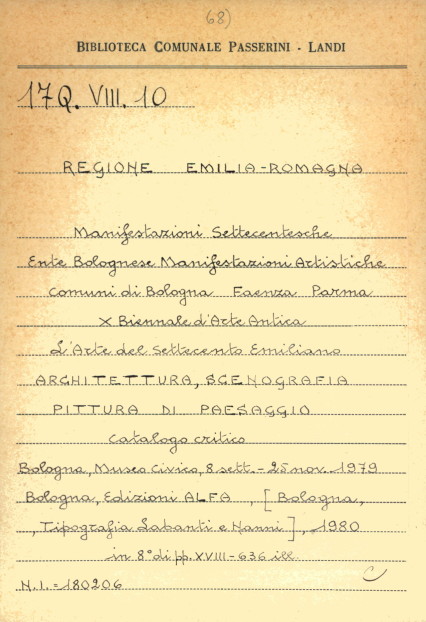 68)
BIBLIOTECA COMUNALE PASSERINI - LANDI
17Q. VIII. 10
REGIONE EMILIA-ROMAGNA
Manifestazioni Settecentesche
Ente Bolognese Manifestazioni Artistiche
Comuni di Bologna Faenza Parma
X Biennale d'Arte Antica
L'Arte del Settecento Emiliano
ARCHITETTURA, SCENOGRAFIA
PITTURA DI PAESAGGIO
Catalogo critico
Bologna, Museo Civico, 8 sett. - 25 nov. 1979
Bologna, Edizioni ALFA , [ Bologna,
, Tipografia Labanti e Nanni ] , 1980
in 8° di pp. XVIII - 636 ill.
C
N.I. = 180206